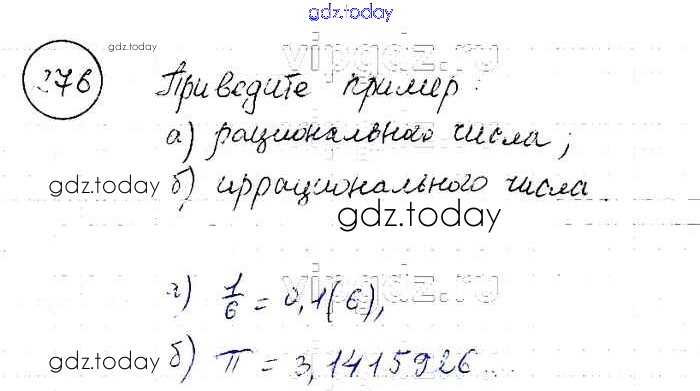 gdz.today
gdz.today
vipgdz.ru
276
Приведите пример:
а) рационального числа;
gdz.today
б) иррационального числа.
gdz.today
vipgdz.ru
а) 1/6 = 0,1(6),
gdz.today
б) π = 3,1415926...